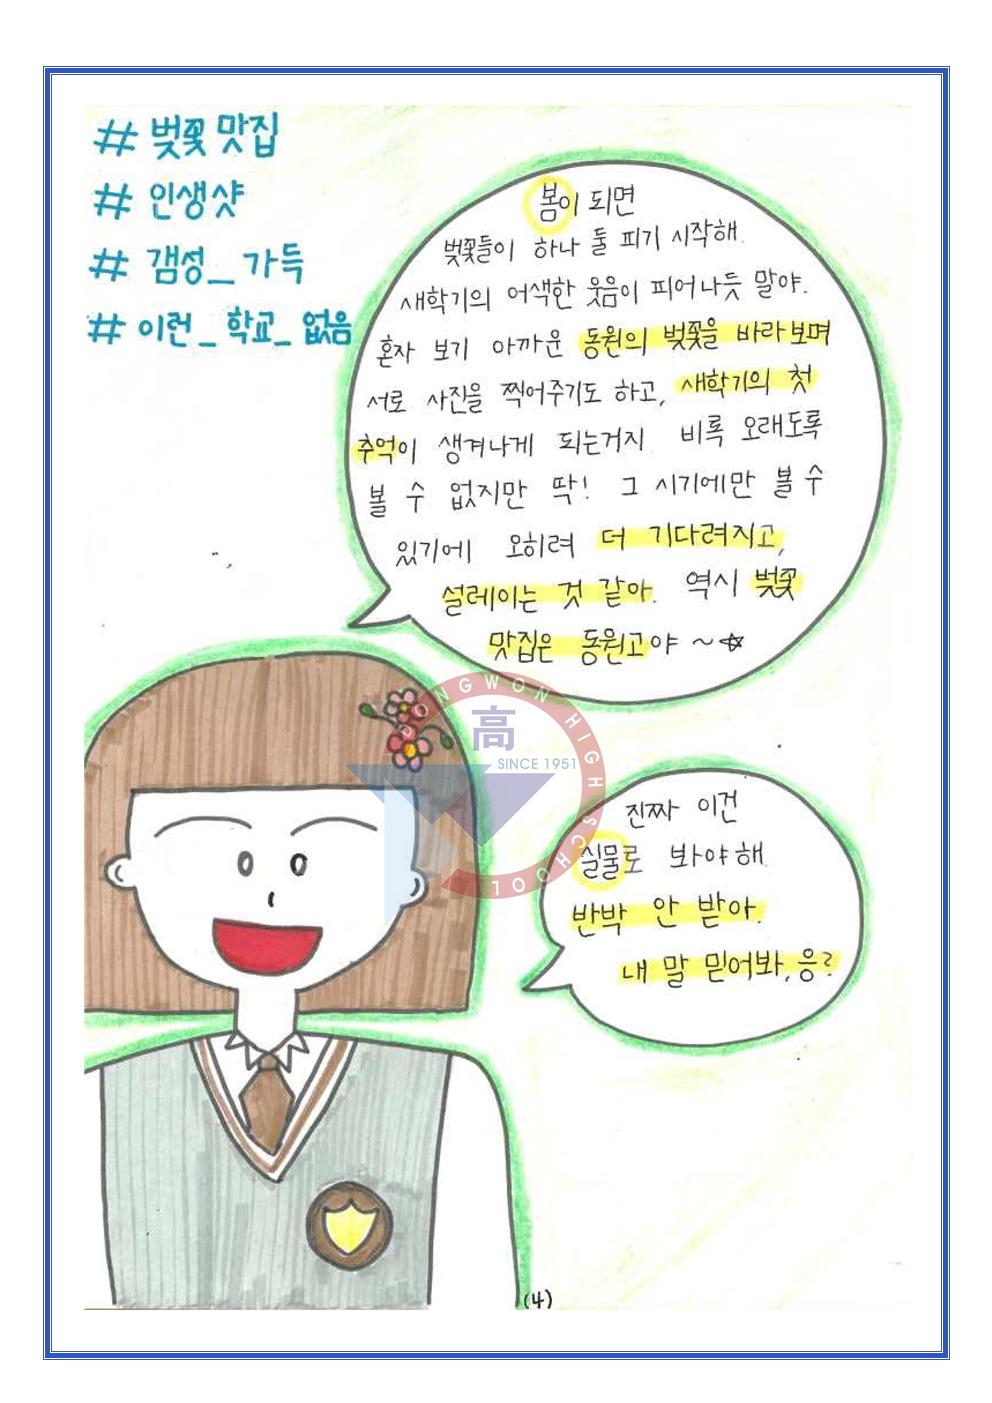 # 벚꽃 맛집
# 인생샷
# 갬성_가득
# 이런_학교_없음
봄이 되면
벚꽃들이 하나 둘 피기 시작해.
새학기의 어색한 웃음이 피어나듯 말야.
혼자 보기 아까운 동원의 벚꽃을 바라보며
서로 사진을 찍어주기도 하고, 새학기의 첫
추억이 생겨나게 되는거지 비록 오래도록
볼 수 없지만 딱! 그 시기에만 볼 수
있기에 오히려 더 기다려지고,
설레이는 것 같아. 역시 벚꽃
맛집은 동원고야 ~☆
DONGWON HIGH SCHOOL
高
SINCE 1951
진짜 이건
실물로 봐야해.
반박 안 받아.
내 말 믿어봐, 응?
(4)